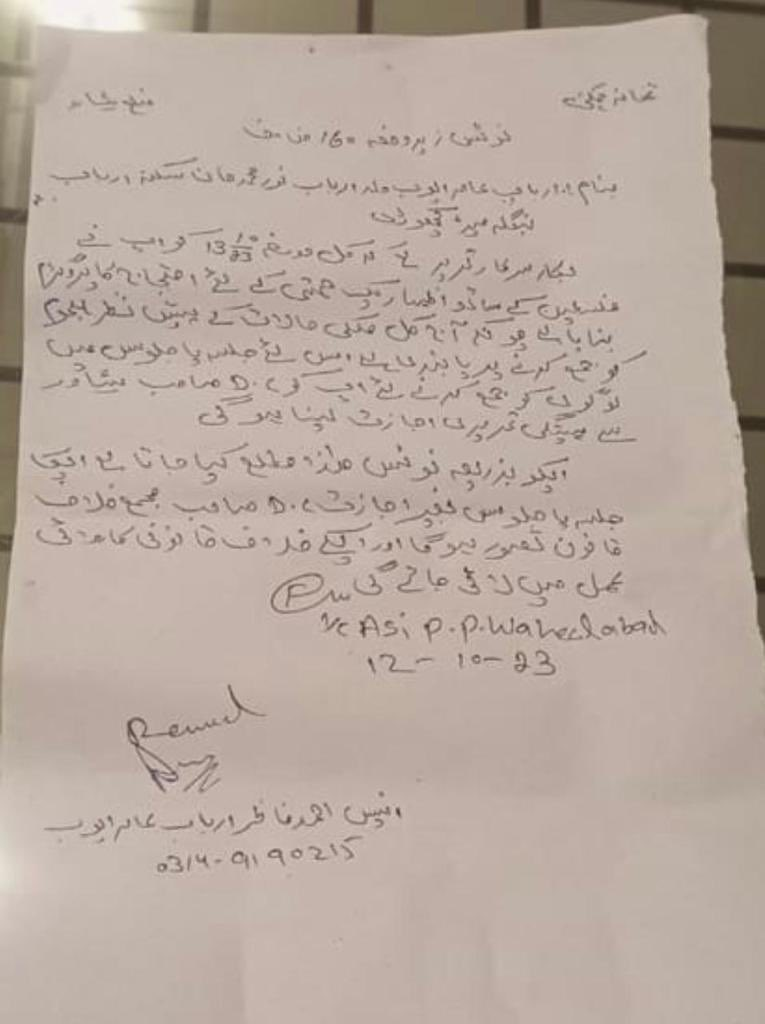 تھانہ چمکنی ضلع پشاور
نوٹس زیر دفعہ 160 ض ف
بنام ارباب عامر ایوب ولد ارباب نور محمد خان سکنہ ارباب
بنگلہ میرہ کچوڑی
بحوالہ تحریر ہے کہ کل مورخہ 13 10/23 کو آپ نے
فلسطین کے ساتھ اظہار یک جہتی کے لئے احتجاج کا پروگرام
بنایا ہے چونکہ آج کل ملکی حالات کے پیش نظر ہجوم
کو جمع کرنے پر پابندی ہے اس لئے جلسہ یا جلوس میں
لوگوں کو جمع کرنے لئے آپ کو D.C صاحب پشاور
سے پیشگی تحریری اجازت لینا ہوگی
آپکو بذریعہ نوٹس ھذا مطلع کیا جاتا ہے آپکا
جلسہ یا جلوس بغیر اجازت D.C صاحب مجمع خلاف
قانون تصور ہوگا اور آپکے خلاف قانونی کاروائی
عمل میں لائی جائے گی
I/c ASi P.P. Waheedabad
12-10-23
انیس احمد ارباب عامر ایوب
0314-9190215